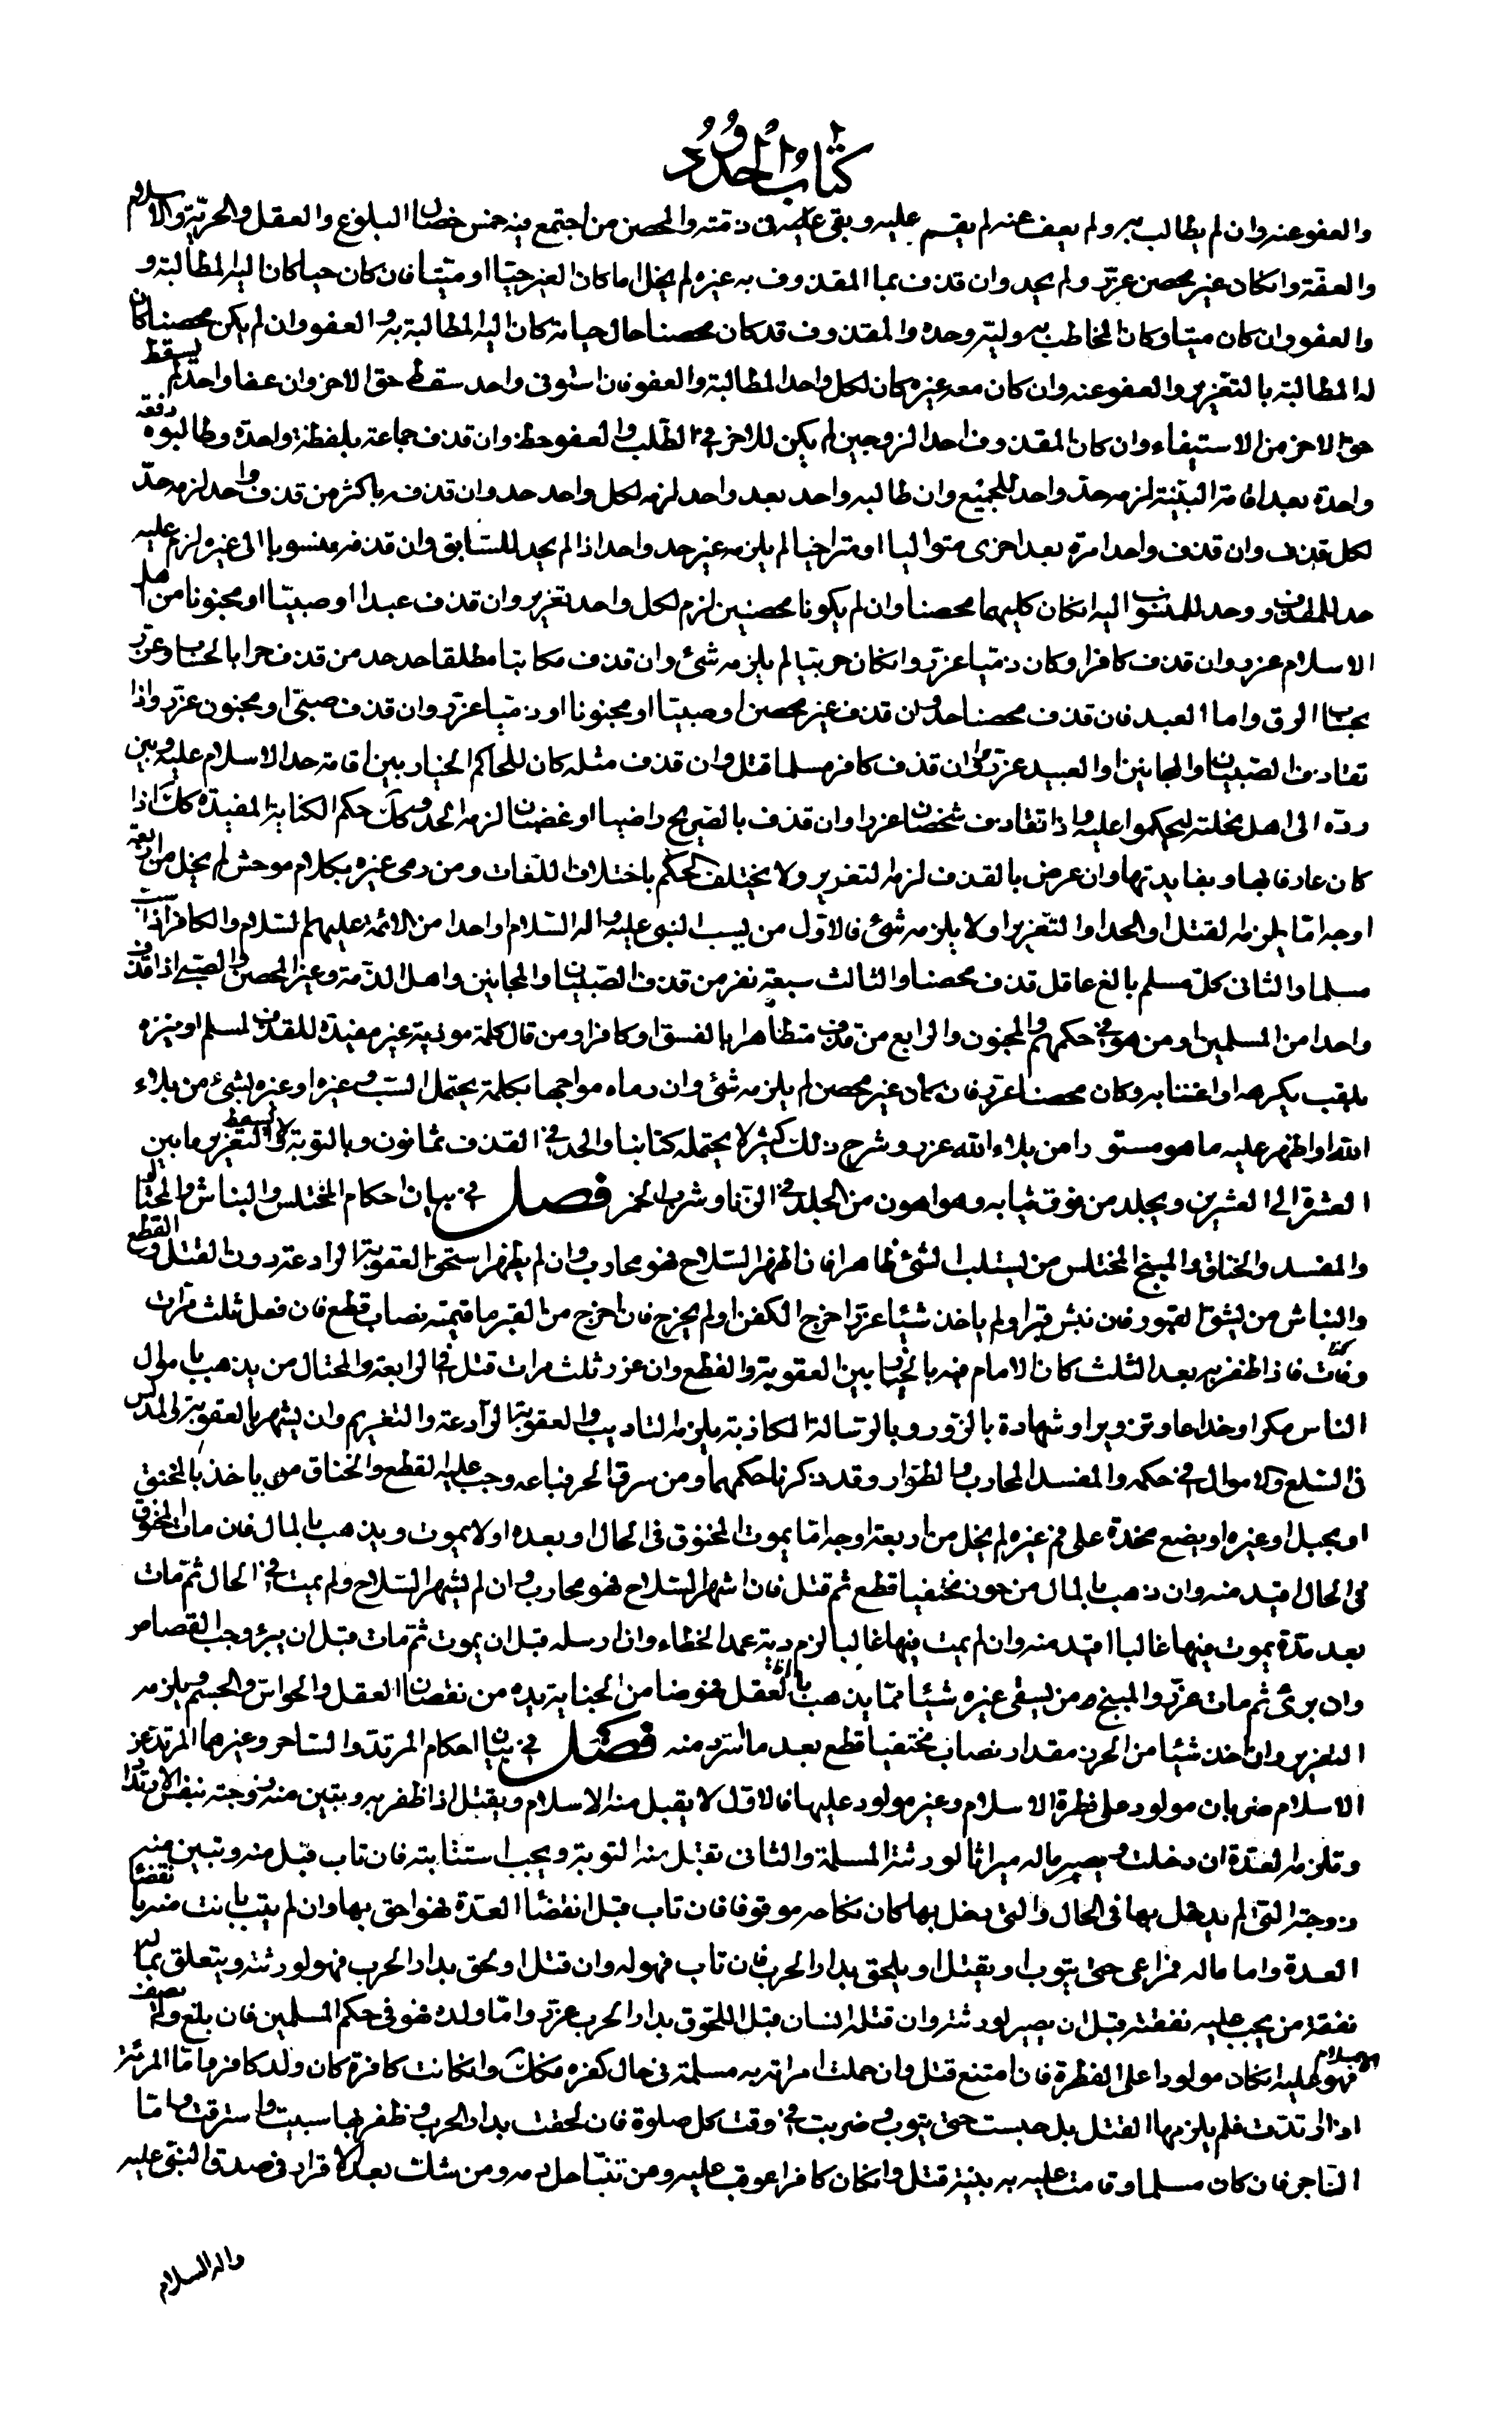 كتاب الحدود
والعفو عنه وان لم يطالب به ولم يعف عنه لم يقم عليه وبقى عليه فى ذمته والمحصن من اجتمع فيه خمس خصال البلوغ والعقل والحرية والاسلام
والعفة وان كان غير محصن عزر ولم يحد وان قذف بما المقذوف به غيره لم يخل اما كان الغير حيا او ميتا فان كان حيا كان اليه المطالبة و
والعفو وان كان ميتا وكان المخاطب به وليه وحده والمقذوف قد كان محصنا حال حياته كان اليه المطالبة به والعفو وان لم يكن محصنا كان
له المطالبة بالتعزير والعفو عنه وان كان معه غيره كان لكل واحد المطالبة والعفو فان استوفى واحد سقط حق الاخر وان عفا واحد لم يسقط
حق الاخر من الاستيفاء وان كان المقذوف احد الزوجين لم يكن للاخر فى الطلب والعفو حظ وان قذف جماعة بلفظة واحدة وطالبوه دفعة
واحدة بعد اقامة البينة لزمه حد واحد للجميع وان طالبه واحد بعد واحد لزمه لكل واحد حد وان قذفه باكثر من قذف واحد لزمه حد
لكل قذف وان قذف واحدا مرة بعد اخرى متواليا او متراخيا لم يلزمه غير حد واحد اذا لم يحد للسابق وان قذفه منسوبا الى غيره لزم عليه
حد للمقذوف وحد للمنسوب اليه ان كان كليهما محصنا وان لم يكونا محصنين لزم لكل واحد تعزير وان قذف عبدا او صبيا او مجنونا من اهل
الاسلام عزر وان قذف كافرا وكان ذميا عزر وان كان حربيا لم يلزمه شئ وان قذف مكاتبا مطلقا حد حد من قذف حرا بالحساب وعزر
بحساب الرق واما العبد فان قذف محصنا حد وان قذف غير محصن او صبيا او مجنونا او ذميا عزر وان قذف صبى او مجنون عزر واذا
تقاذف الصبيان والمجانين او العبيد عزروا وان قذف كافر مسلما قتل وان قذف مثله كان للحاكم الخيار بين اقامة حد الاسلام عليه وبين
رده الى اهل نحلته ليحكموا عليه واذا تقاذف شخصان عزرا وان قذف بالصريح راضيا او غضبان لزمه الحد وكك حكم الكناية المفيدة كك اذا
كان عارفا بها وبفايدتها وان عرض بالقذف لزمه التعزير ولا يختلف الحكم باختلاف اللغات ومن رمى غيره بكلام موحش لم يخل من اربعة
اوجه اما يلزمه القتل او الحد او التعزير او لا يلزمه شئ فالاول من يسب النبى عليه واله السلام او احدا من الائمة عليهم السلام والكافر اذا سب
مسلما والثانى كل مسلم بالغ عاقل قذف محصنا والثالث سبعة نفر من قذف الصبيان والمجانين واهل الذمة وغير المحصن والصبى اذا قذف
واحدا من المسلمين او من هو فى حكمهم والمجنون والرابع من قذف متظاهرا بالفسق او كافرا ومن قال كلمة موذية غير مفيدة للقذف لمسلم او نبزه
بلقب يكرهه او اغتابه وكان محصنا عزر فان كان غير محصن لم يلزمه شئ وان رماه مواجها بكلمة يحتمل السب وغيره او عيره بشئ من بلاء
الله او اظهر عليه ما هو مستور من بلاء الله عزر وشرح ذلك كثير لا يحتمله كتابنا والحد فى القذف ثمانون وبالتوبة لا يسقط والتعزير ما بين
العشرة الى العشرين ويجلد من فوق ثيابه وهو اهون من الجلد فى الزنا وشرب الخمر فصل فى بيان احكام المختلس والنباش والمحتال
والمفسد والخناق والمبنج المختلس من يستلب الشئ ظاهرا فان اظهر السلاح فهو محارب وان لم يظهر استحق العقوبة الرادعة دون القتل والقطع
والنباش من يشق القبور فان نبش قبرا ولم ياخذ شيئا عزر اخرج الكفن او لم يخرج فان اخرج من القبر ما قيمته نصاب قطع فان فعل ثلث مرات
وفات فاذا ظفر به بعد الثلث كان الامام فيه بالخيار بين العقوبة والقطع وان عزر ثلث مرات قتل فى الرابعة والمحتال من يذهب باموال
الناس مكرا وخداعا وتزويرا وشهادة بالزور وبالرسالة الكاذبة يلزمه التاديب والعقوبة الرادعة والتغريم وان يشهر بالعقوبة والمدلس
فى السلع والاموال فى حكمه والمفسد المحارب والطرار وقد ذكرنا حكمهما ومن سرق الحر فباعه وجب عليه القطع والخناق من ياخذ بالمخنق
او بحبل او غيره او يضع مخدة على فم غيره لم يخل من اربعة اوجه اما يموت المخنوق فى الحال او بعده او لا يموت ويذهب بالمال فان مات المخنوق
فى الحال اقيد منه وان ذهب بالمال من حرز مختفيا قطع ثم قتل فان اشهر السلاح فهو محارب وان لم يشهر السلاح ولم يمت فى الحال ثم مات
بعد مدة يموت فيها غالبا اقيد منه وان لم يمت فيها غالبا لزم دية عمد الخطاء وان ارسله قبل ان يموت ثم مات قبل ان يبرء وجب القصاص
وان برئ ثم مات عزر والمبنج من يسقى غيره شيئا مما يذهب بالعقل فهو ضامن الجناية يديه من نقصان العقل والحواس والجسم ويلزمه
التعزير وان اخذ شيئا من الحرز مقدار نصاب مختفيا قطع بعد ما استرد منه فصل فى بيان احكام المرتد والساحر وغيرهما المرتد عن
الاسلام ضربان مولود على فطرة الاسلام وغير مولود عليها فالاول لا يقبل منه الاسلام ويقتل اذا ظفر به وتبين منه زوجته بنفس الارتداد
وتلزمه العدة ان دخلت ويصير ماله ميراثا لورثته المسلمة والثانى تقبل منه التوبة ويجب استتابته فان تاب قبل منه وتبين منه
زوجته التى لم يدخل بها فى الحال والتى دخل بها كان نكاحه موقوفا فان تاب قبل انقضاء العدة فهو احق بها وان لم يتب بانت منه بانقضاء
العدة واما ماله فمراعى حتى يتوب او يقتل او يلحق بدار الحرب فان تاب فهو له وان قتل او لحق بدار الحرب فهو لورثته ويتعلق بماله
نفقة من يجب عليه نفقته قبل ان يصير لورثته وان قتله انسان قبل اللحوق بدار الحرب عزر واما ولده فهو فى حكم المسلمين فان بلغ ولم يصف
الاسلام فهو كما عليه ان كان مولودا على الفطرة فان امتنع قتل وان حملت امراته به مسلمة فى حال كفره فكك وان كانت كافرة كان ولد كافر واما المرئة
اذا ارتدت فلم يلزمها القتل بل حبست حتى يتوب وضربت فى وقت كل صلوة فان لحقت بدار الحرب وظفر بها سبيت واسترقت واما
الساحر فان كان مسلما وقامت عليه به بينة قتل وان كان كافرا عوقب عليه ومن تنبا حل دمه ومن شك بعد الاقرار فى صدق النبى عليه
واله السلام